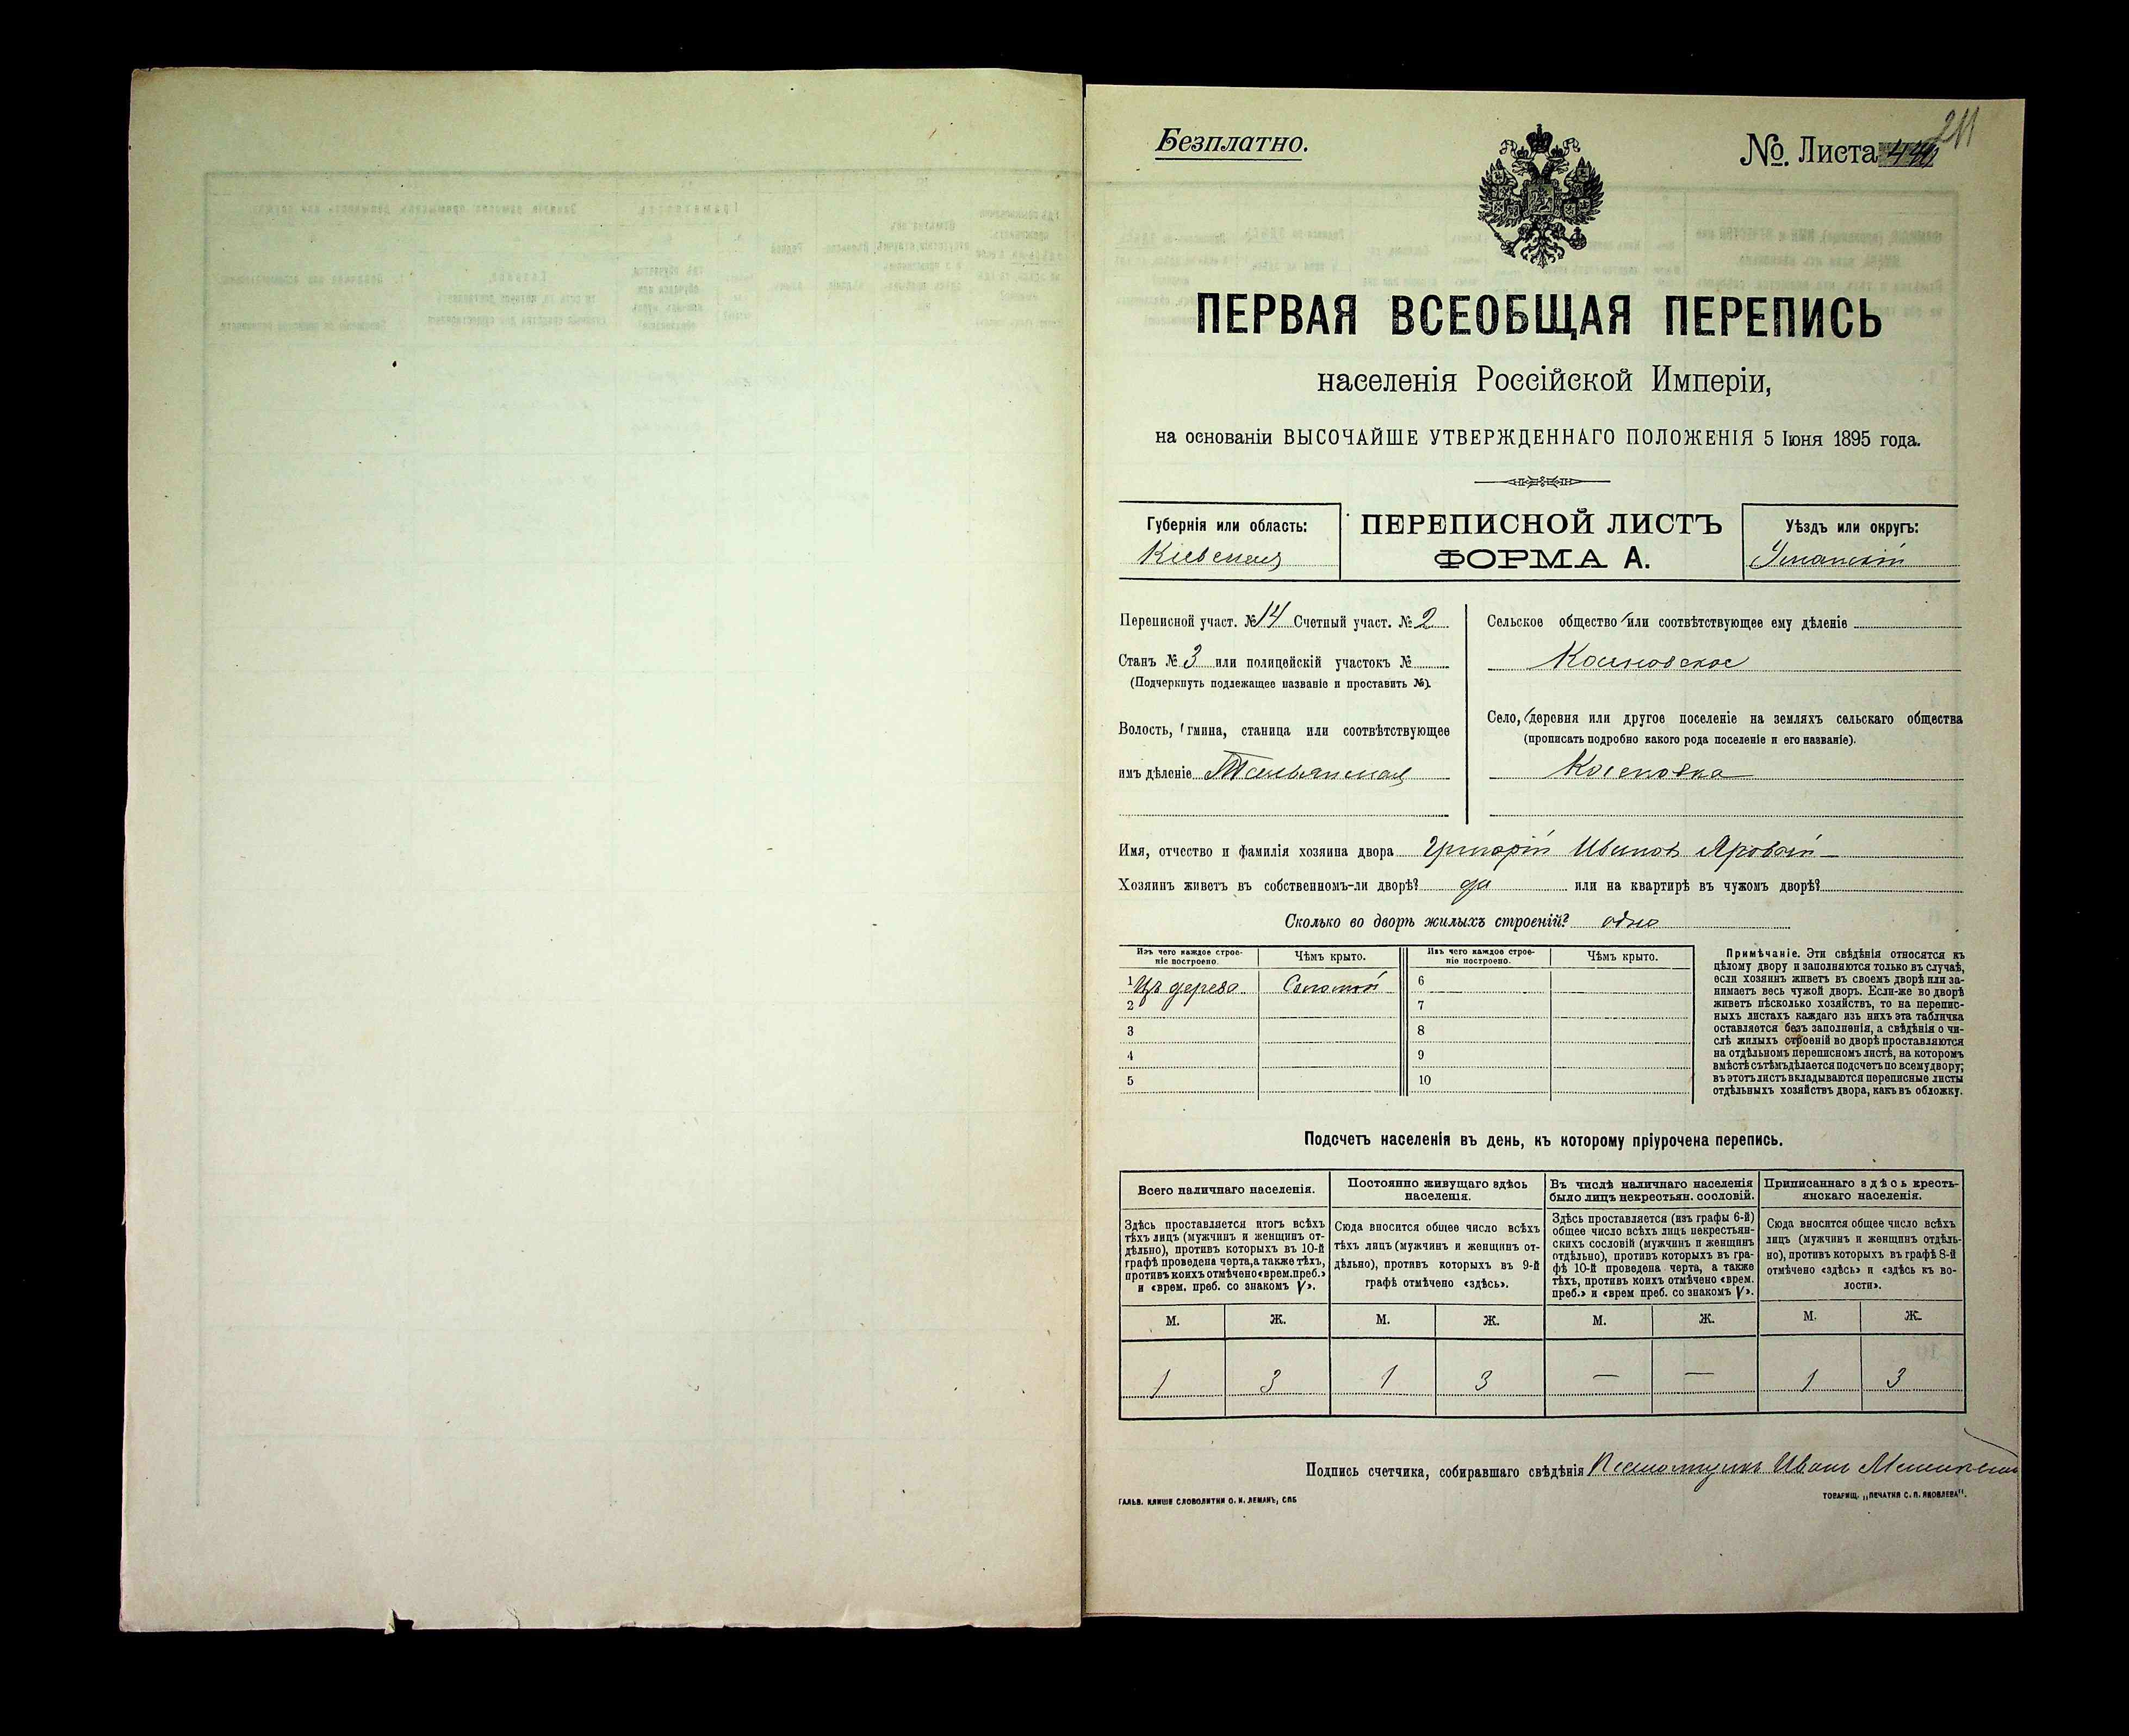 Безплатно.
№. Листа
211
ПЕРВАЯ ВСЕОБЩАЯ ПЕРЕПИСЬ
населенія Россійской Имперіи,
на основаніи ВЫСОЧАЙШЕ УТВЕРЖДЕННАГО ПОЛОЖЕНІЯ 5 Іюня 1895 года.
Губернія или область:
Кіевская
ПЕРЕПИСНОЙ ЛИСТЪ
ФОРМА А.
Уѣздъ или округъ:
Уманскій
Переписной участ. № 14 Счетный участ. № 2
Станъ № 3 или полицейскій участокъ №
(Подчеркнуть подлежащее названіе и проставить №).
Волость, гмина, станица или соотвѣтствующее
имъ дѣленіе Тальянская
Сельское общество или соотвѣтствующее ему дѣленіе
Косеновское
Село, деревня или другое поселеніе на земляхъ сельскаго общества
(прописать подробно какого рода поселеніе и его названіе).
Косеновка
Имя, отчество и фамилія хозяина двора Григорій Ивановъ Яровой
Хозяинъ живетъ въ собственномъ-ли дворѣ? да или на квартирѣ въ чужомъ дворѣ?
Сколько во дворѣ жилыхъ строеній? одно
Изъ чего каждое строе-
ніе построено.
Чѣмъ крыто.
Изъ чего каждое строе-
ніе построено.
Чѣмъ крыто.
1 Изъ дерева Соломой 6
2 7
3 8
4 9
5 10
Примѣчаніе. Эти свѣдѣнія относятся къ
цѣлому двору и заполняются только въ случаѣ,
если хозяинъ живетъ въ своемъ дворѣ или за-
нимаетъ весь чужой дворъ. Если-же во дворѣ
живетъ нѣсколько хозяйствъ, то на перепис-
ныхъ листахъ каждаго изъ нихъ эта табличка
оставляется безъ заполненія, а свѣдѣнія о чи-
слѣ жилыхъ строеній во дворѣ проставляются
на отдѣльномъ переписномъ листѣ, на которомъ
вмѣстѣ съ тѣмъ дѣлается подсчетъ по всему двору;
въ этотъ листъ вкладываются переписные листы
отдѣльныхъ хозяйствъ двора, какъ въ обложку.
Подсчетъ населенія въ день, къ которому пріурочена перепись.
Всего наличнаго населенія.
Здѣсь проставляется итогъ всѣхъ
тѣхъ лицъ (мужчинъ и женщинъ от-
дѣльно), противъ которыхъ въ 10-й
графѣ проведена черта, а также тѣхъ,
противъ коихъ отмѣчено «врем. преб.»
и «врем. преб. со знакомъ V».
Постоянно живущаго здѣсь
населенія.
Сюда вносится общее число всѣхъ
тѣхъ лицъ (мужчинъ и женщинъ от-
дѣльно), противъ которыхъ въ 9-й
графѣ отмѣчено «здѣсь».
Въ числѣ наличнаго населенія
было лицъ некрестьян. сословій.
Здѣсь проставляется (изъ графы 6-й)
общее число всѣхъ лицъ некрестьян-
скихъ сословій (мужчинъ и женщинъ
отдѣльно), противъ которыхъ въ гра-
фѣ 10-й проведена черта, а также
тѣхъ, противъ коихъ отмѣчено «врем.
преб.» и «врем преб. со знакомъ V».
Приписаннаго здѣсь кресть-
янскаго населенія.
Сюда вносится общее число всѣхъ
лицъ (мужчинъ и женщинъ отдѣль-
но), противъ которыхъ въ графѣ 8-й
отмѣчено «здѣсь» и «здѣсь къ во-
лости».
М. Ж. М. Ж. М. Ж. М. Ж.
1 3 1 3 — — 1 3
Подпись счетчика, собиравшаго свѣдѣнія Иванъ
ГАЛЬВ. КЛИШЕ СЛОВОЛИТНИ О. И. ЛЕМАНЪ, СПБ
ТОВАРИЩ. „ПЕЧАТНЯ С. П. ЯКОВЛЕВА".